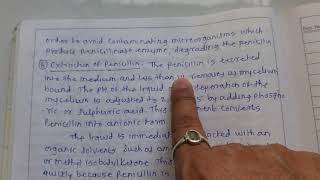 order to avoid contaminating microorganisms which
produce penicillinase enzyme, degrading the penicillin
Extraction of penicillin: The penicillin is excreted
into the medium and less than remains as mycelium
bound. The pH of the liquid seperation of the
mycelium is adjusted to 2. 5 by adding phospho
ric or sulphuric acid. This ment converts
Penicillin into anionic form
The liquid is immediat cted with an
organic solvents such as am
or methyl isobutyl ketone. This
quickly because penicillin is